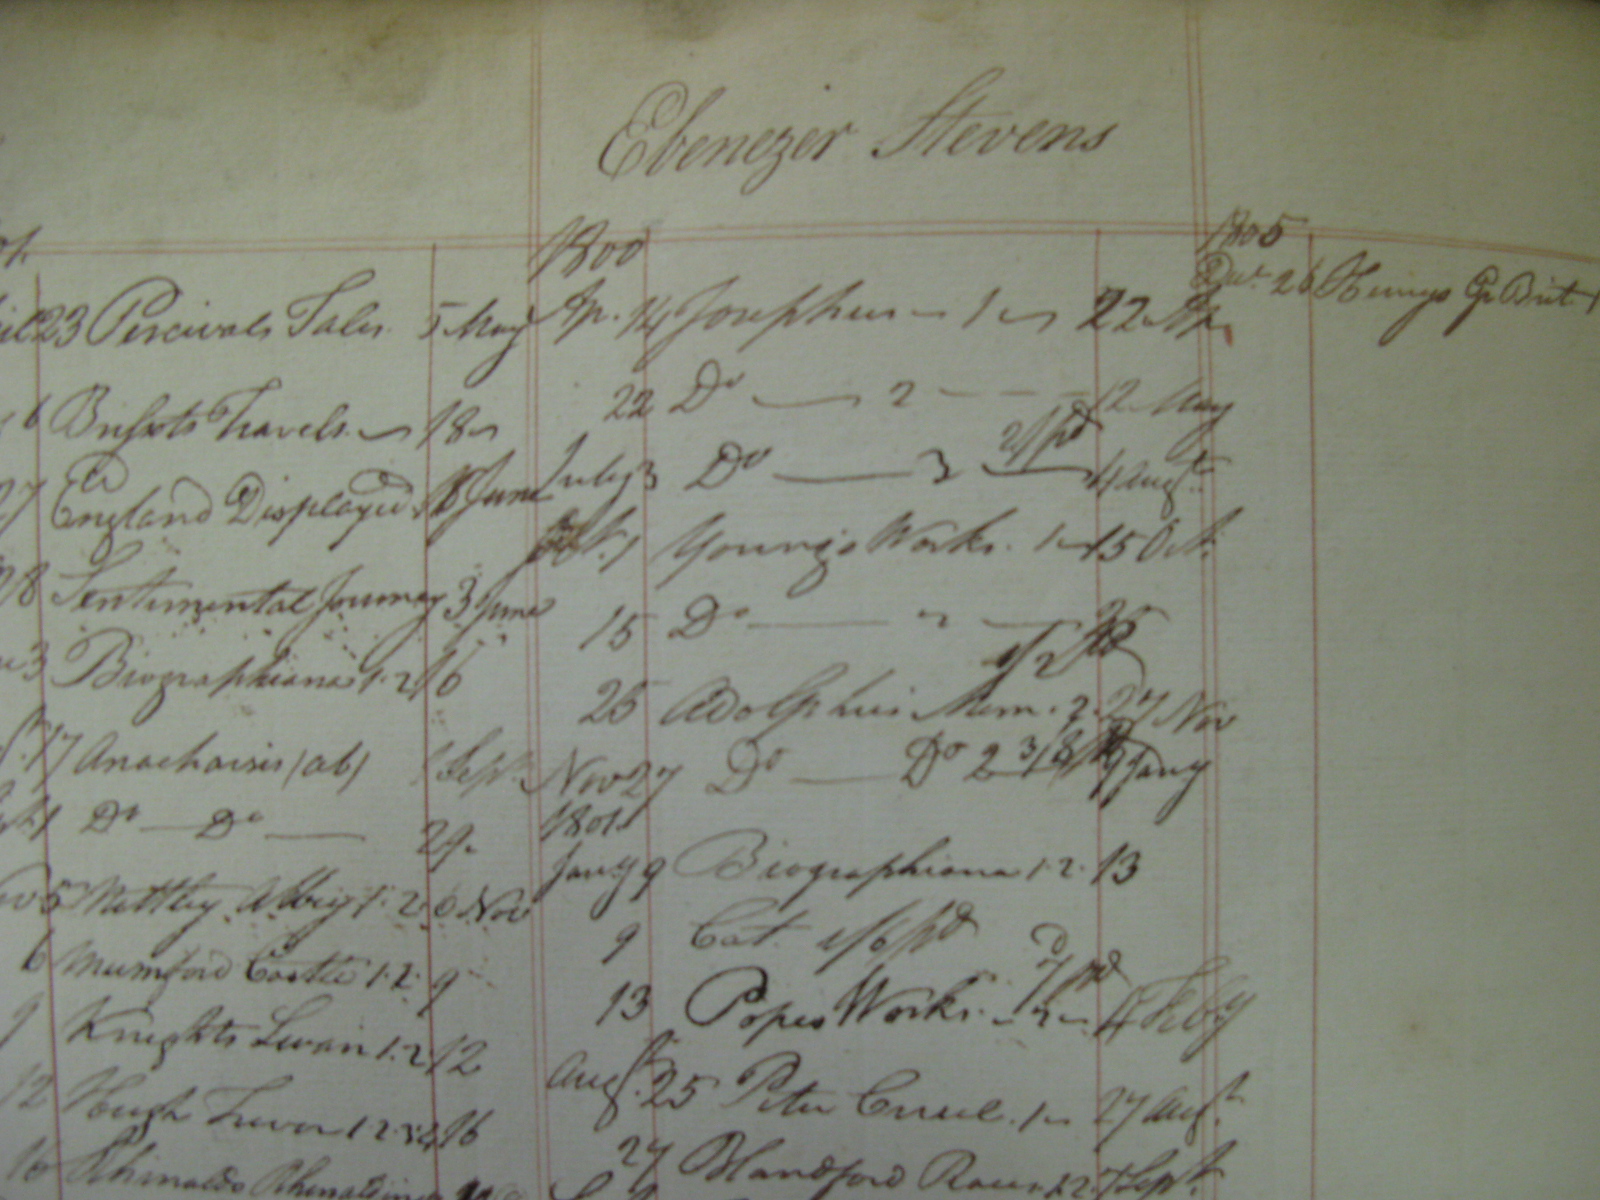 Ebenezer Stevens
23 Percivals Tales 5 May
6 Brissots Travels 18
27 England Displayed 18 June
28 Sentimental Journey 3 June
3 Biographiana 1.2 16
17 Anacharsis (ab) 1 Sept.
Do — Do — 29.
5 Nettley Abbey 1.2 6 Nov
6 Mumford Castle 1.2 9
9 Knights Swan 1.2 12
12 Hugh Trevor 1 2 3 4 16
16 Rhinaldo
1800
Ap. 14 Josephus 1 22 Ap.
22 Do — 2 — 12 May
July 3 Do — 3 2/ pd 4 Augt
1 Youngs Works. 1 15 Oct.
15 Do
25 Adolphus Mem. 2. 27 Nov
Nov 27 Do — Do 2 3/8 9 Jany
1801.
Jany 9 Biographiana 1.2. 13
9 Cat. pd
13 Popes Works. pd 4 Feby
Augt. 25 Peter 1 27 Augt
27 Blandford Races 1.2. 7 Sept.
1805
26 Henrys Gr Brit 1